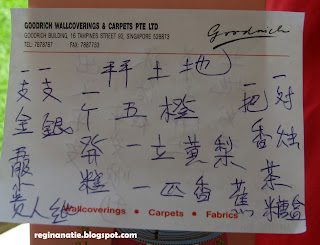 GOODRICH WALLCOVERINGS & CARPETS PTE LTD
GOODRICH BUILDING, 16 TAMPINES STREET 92, SINGAPORE 528873
TEL: 7878787 FAX: 7887733
Goodrich
拜土地
一对烛
一把香
茶
糖盒
五橙
一立黄梨
一匹香蕉
一午發糕
一支銀
一支金
五
貴人紙
Wallcoverings • Carpets • Fabrics
reginanatie.blogspot.com